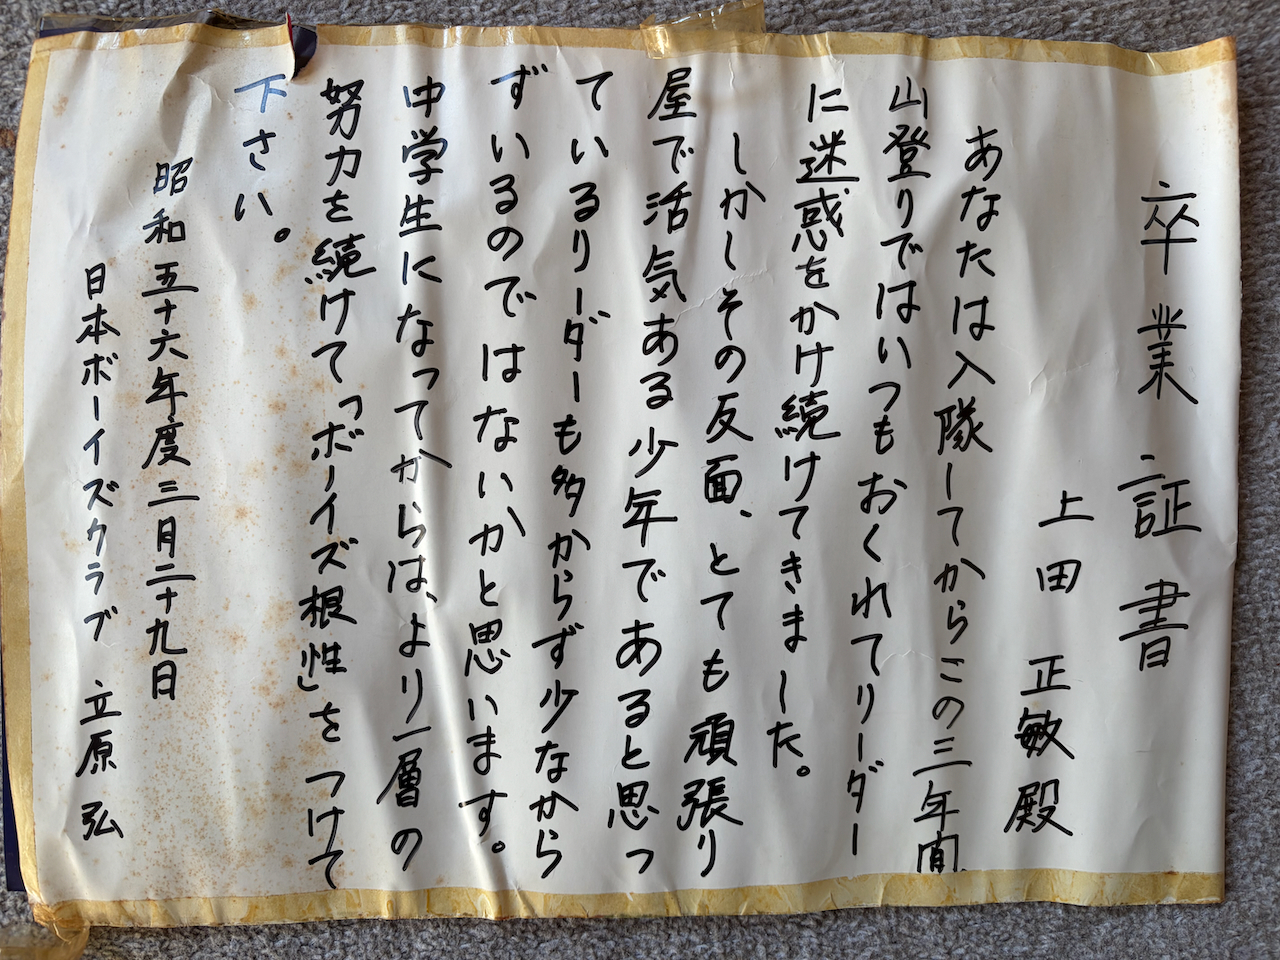 卒業証書
上田 正敏殿
あなたは入隊してからこの三年間、
山登りではいつもおくれてリーダー
に迷惑をかけ続けてきました。
しかしその反面、とても頑張り
屋で活気ある少年であると思っ
ているリーダーも多からず少なから
ずいるのではないかと思います。
中学生になってからは、より一層の
努力を続けて「ボーイズ根性」をつけて
下さい。
昭和五十六年度三月二十九日
日本ボーイズクラブ 立原 弘